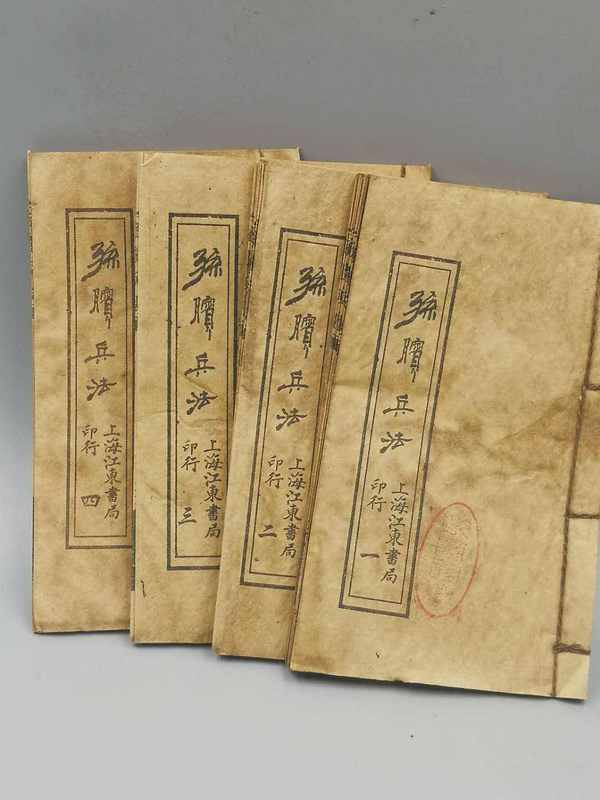 孫臏兵法
上海江東書局
印行
一
孫臏兵法
上海江東書局
印行
二
孫臏兵法
上海江東書局
印行
三
孫臏兵法
上海江東書局
印行
四